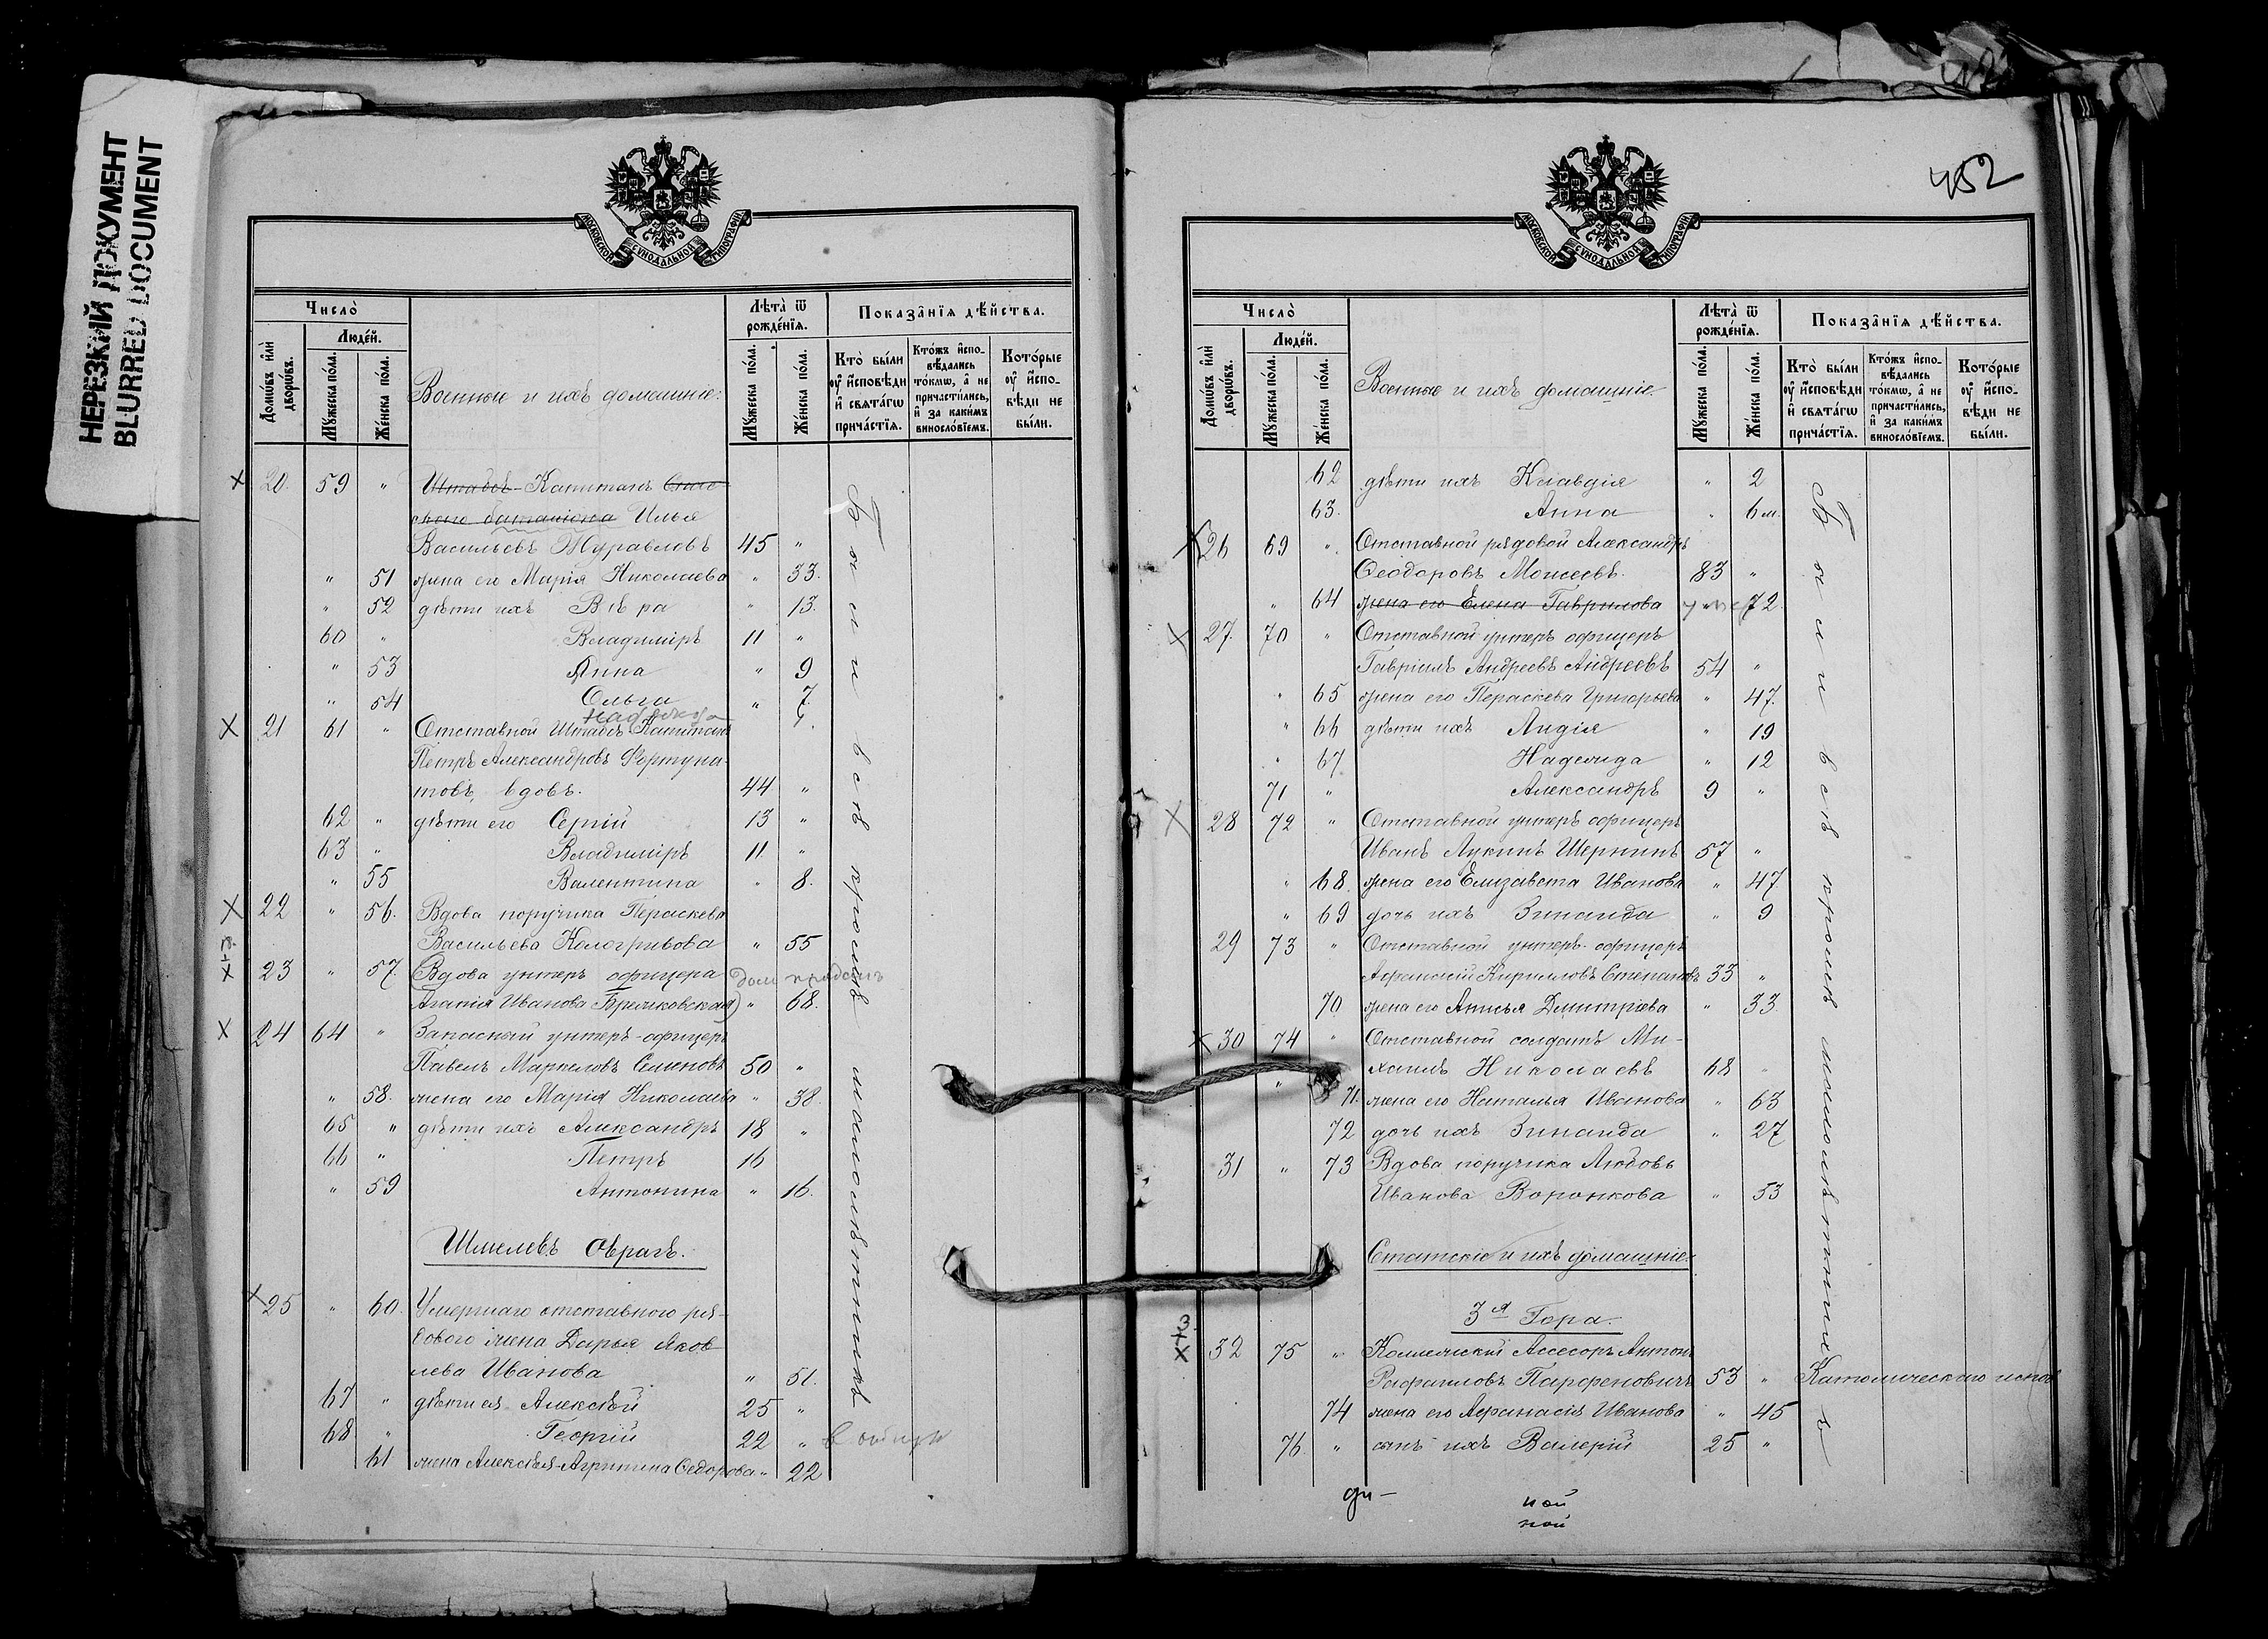 НЕРЕЗКИЙ ДОКУМЕНТ
BLURRED DOCUMENT
МОСКОВСКОЙ СѴНОДАЛЬНОЙ ТИПОГРАФІИ
Число̀
Домѡ́въ и҆лѝ дворѡ́въ.
Люде́й.
Мꙋ́жеска по́ла.
Же́нска по́ла.
Военные и ихъ домашніе.
Лѣта̀ ѿ рожде́нїѧ.
Мꙋ́жеска по́ла.
Же́нска по́ла.
Показа̂нїѧ дѣ́йства.
Кто̀ бы́ли оу҆ и҆сповѣ́ди и҆ свѧта́гѡ прича́стїѧ.
Кто́жъ и҆спо-вѣ́дались то́кмѡ, а҆ не причасти́лись, и҆ за каки́мъ винослóвїемъ.
Кото́рые оу҆ и҆спо-вѣ́ди не бы́ли.
20. 59 " Штабсъ-Капитанъ
скаго баталіона Илья
Васильевъ Журавловъ 45 "
" 51 жена его Марія Николаева " 33.
" 52 дѣти ихъ Вѣра " 13.
60 " Владиміръ 11 "
" 53 Анна " 9
" 54 Ольга " 7.
Надежда
21 61 " Отставной Штабсъ-Капитанъ
Петръ Александровъ Фортуна-
товъ, вдовъ. 44 "
62 " дѣти его Сергій 13 "
63 " Владиміръ 11 "
" 55 Валентина " 8.
22 " 56. Вдова поручика Параскева
Васильева Кологривова " 55
23 " 57. (Вдова унтеръ офицера дом продать
Агапія Ивановa Бреѧковская) " 68.
24 64 " Запасный унтеръ-офицеръ
Павелъ Маркеловъ Семеновъ 50 "
" 58. жена его Марія Николаева " 38.
65 " дѣти ихъ Александръ 18 "
66 " Петръ 16
" 59 Антонина " 16.
Шмелевъ Оврагъ.
25 " 60. Умершаго отставного ря-
дового жена Дарья Яков
лева Иванова " 51.
67 " дѣти ея Алексѣй 25 "
68 " Георгій 22 "
61 жена Алексѣя-Агрипина Ѳедорова " 22
Были всѣ кромѣ малолѣтнихъ
452
МОСКОВСКОЙ СѴНОДАЛЬНОЙ ТИПОГРАФІИ
Число̀
Домѡ́въ и҆лѝ дворѡ́въ.
Люде́й.
Мꙋ́жеска по́ла.
Же́нска по́ла.
Военные и ихъ домашніе.
Лѣта̀ ѿ рожде́нїѧ.
Мꙋ́жеска по́ла.
Же́нска по́ла.
Показа̂нїѧ дѣ́йства.
Кто̀ бы́ли оу҆ и҆сповѣ́ди и҆ свѧта́гѡ прича́стїѧ.
Кто́жъ и҆спо-вѣ́дались то́кмѡ, а҆ не причасти́лись, и҆ за каки́мъ винослóвїемъ.
Кото́рые оу҆ и҆спо-вѣ́ди не бы́ли.
62 дѣти ихъ Клавдія " 2
63. Анна " 6 м.
26 69 " Отставной рядовой Александръ
Ѳеодоровъ Моисеевъ. 83 "
" 64 жена его Елена Гаврилова 72.
27. 70 " Отставной унтеръ офицеръ
Гавріилъ Андреевъ Андреевъ 54 "
" 65 жена его Параскева Григорьева " 47.
" 66 дѣти ихъ Лидія " 19
" 67 Надежда " 12
71 " Александръ 9 "
28 72 " Отставной унтеръ офицеръ
Иванъ Лукинъ Шернинъ 57 "
" 68. жена его Елизавета Иванова " 47
" 69 дочь ихъ Зинаида " 9
29 73 " Отставной унтеръ-офицеръ
Афанасій Кирилловъ Степановъ 33 "
70 жена его Анисья Дмитріева " 33
30 74 " Отставной солдатъ Ми-
хаилъ Николаевъ 68 "
" 71. жена его Наталья Иванова " 63
72 дочь ихъ Зинаида " 27
31 " 73 Вдова поручика Любовь
Иванова Воронкова " 53
Статскіе и ихъ домашніе.
3я Гора.
32 75 " Коллежскій Ассесоръ Антонъ
Рафаиловъ Парфеновичъ 53 " Католическаго испов
74 жена его Афанасія Иванова " 45
76. " сынъ ихъ Валерій 25 "
Были всѣ кромѣ малолѣтнихъ
ди-
ной
ной